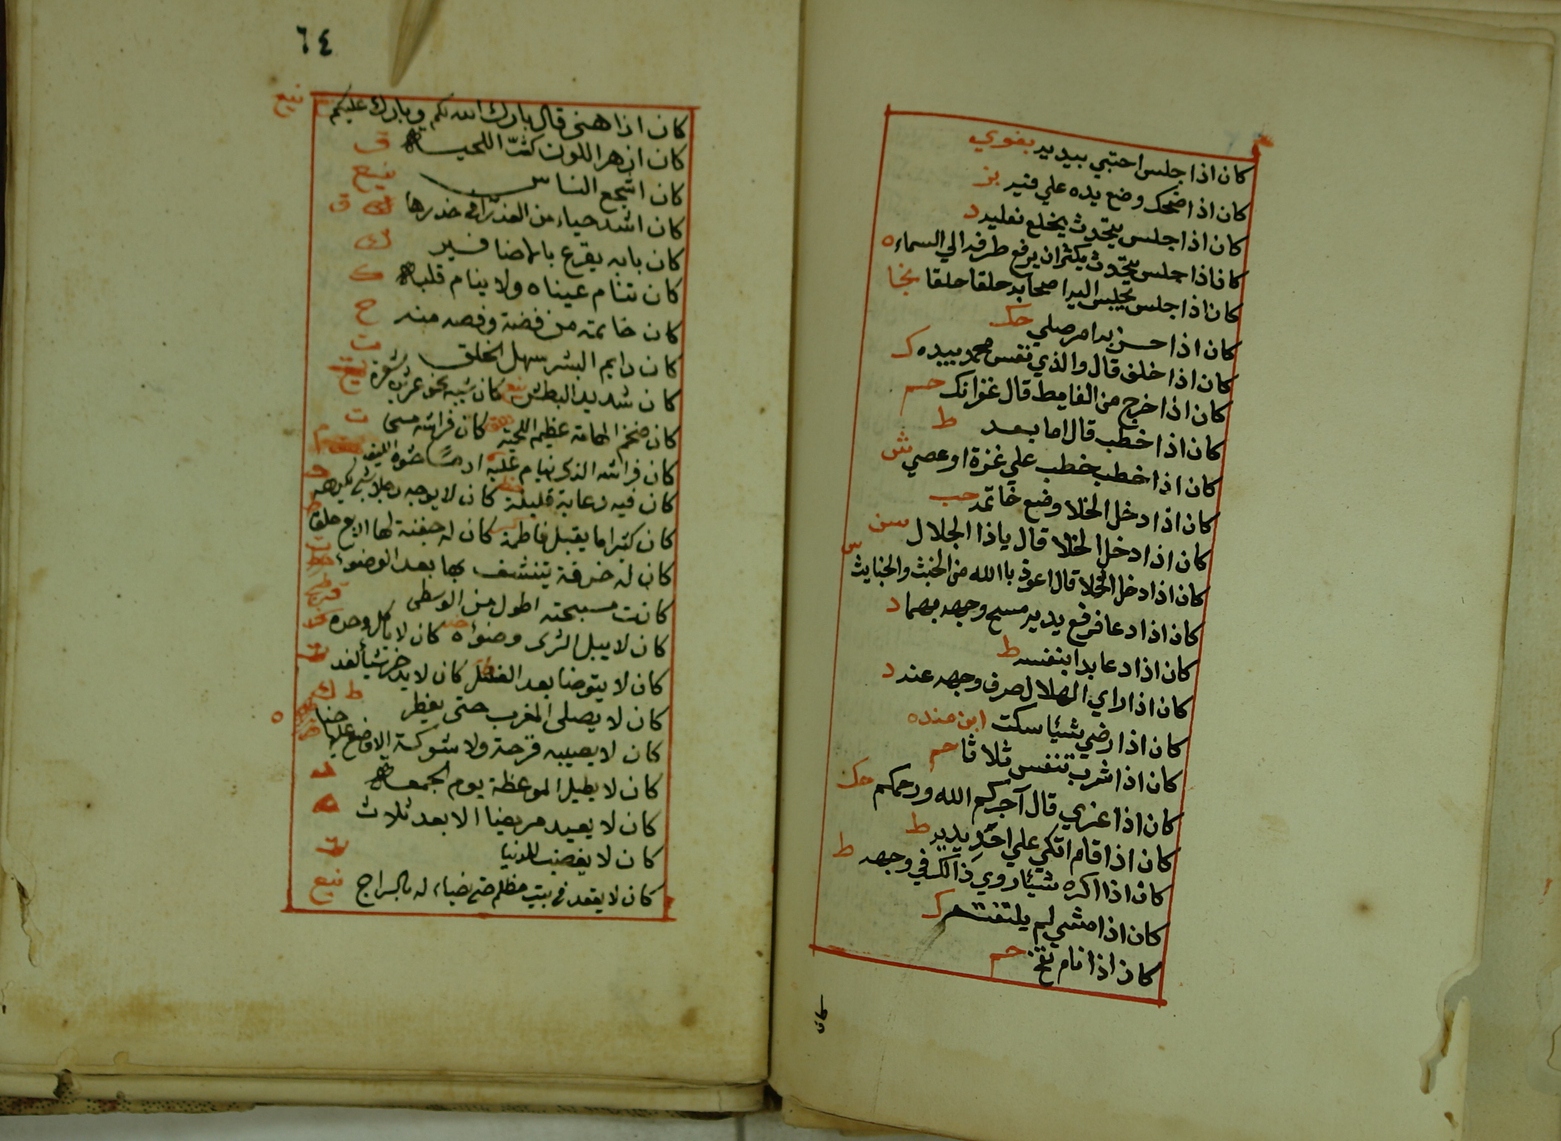 كان اذا جلس احتبي بيديه بغوي
كان اذا ضحك وضع يده علي فيه بز
كان اذا جلس يتحدث يخلع نعليه د
كان اذا جلس يتحدث يكثر ان يرفع طرفه الي السماء ه
كان اذا جلس يجلس اليه اصحابه حلقا حلقا بخا
كان اذا حزبه امر صلي حك
كان اذا حلف قال والذي نفس محمد بيده ك
كان اذا خرج من الغايط قال غفرانك حم
كان اذا خطب قال اما بعد ط
كان اذا خطب خطب علي عنزة او عصي ش
كان اذا دخل الخلا وضع خاتمه حب
كان اذا دخل الخلا قال ياذا الجلال سن
كان اذا دخل الخلا قال اعوذ باالله من الخبث والخبايث س
كان اذا دعا فرفع يديه مسح وجهه بهما د
كان اذا دعا بدا بنفسه ط
كان اذا راي الهلال صرف وجهه عنه د
كان اذا رضي شيئا سكت ابن منده
كان اذا شرب تنفس ثلاثا حم
كان اذا عزي قال آجركم الله ورحمكم حك
كان اذا قام اتكي علي احد يديه ط
كان اذا اكره شيئا روي ذالك في وجهه ط
كان اذا مشي لم يلتفت ك
كان اذا نام نفخ حم
٦٤
كان اذا هنى قال بارك الله لكم وبارك عليكم
كان ازهر اللون كث اللحيه ق
كان اشجع الناس
كان اشد حياء من العذرا في خدرها ق
كان بابه يقرع بالاضافير
كان تنام عيناه ولا ينام قلبه ك
كان خاتمه من فضة وفصه منه خ
كان دايم البشر سهل الخلق ت
كان شديد البطش كان شيبه نحو عشرين شعرة
كان ضخم الهامة عظيم اللحية كان فراشه مسحى ت
كان فراشه الذى ينام عليه ادما حشوه الليف
كان فيه دعابة قليلة كان لا يوجه
كان كثيرا ما يقبل فاطمة كان له جفنة لها اربع حلق
كان له خرقة يتنشف بها بعد الوضوء
كانت مسبحته اطول من الوسطى
كان لا يبل الثرى وضواه كان لا ياكل وحده
كان لا يتوضا بعد الغسل كان لا يدخر شيأ لغد
كان لا يصلى المغرب حتى يفطر
كان لا يصيبه قرحة ولا شوكة الا وضع عليها حنا
كان لا يطيل الموعظة يوم الجمعه
كان لا يعيد مريضا الا بعد ثلاث
كان لا يغضب للدنيا
كان لا يقعد فى بيت مظلم حتى يضياء له بالسراج